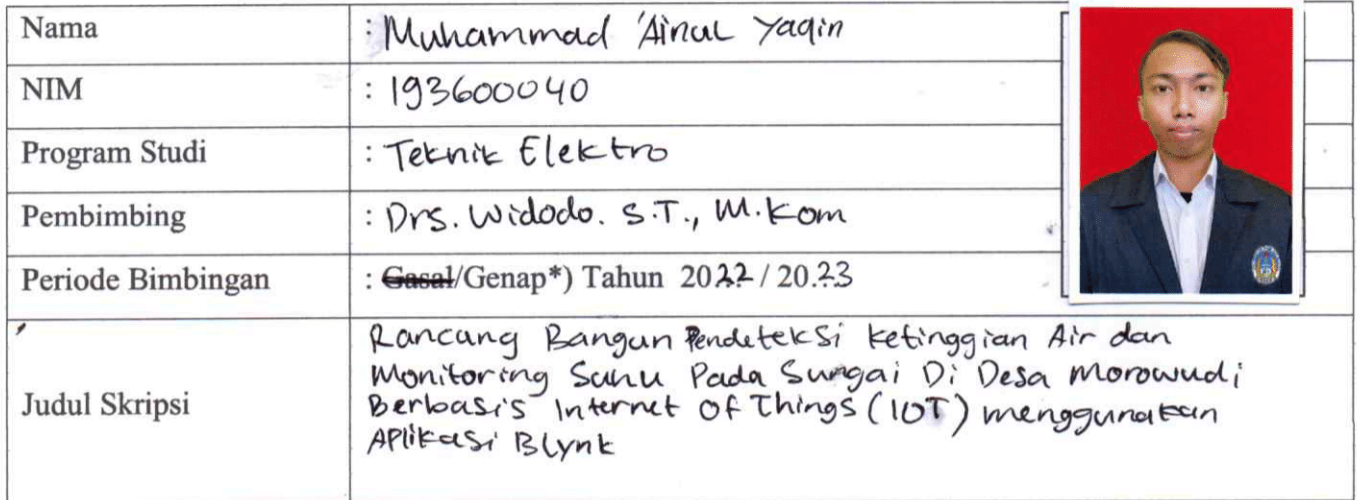 Nama : Muhammad 'Ainul Yaqin
NIM : 193600040
Program Studi : Teknik Elektro
Pembimbing : Drs. Widodo. S.T., M.Kom
Periode Bimbingan : Gasal/Genap*) Tahun 2022 / 20.23
Judul Skripsi
Rancang Bangun Pendeteksi Ketinggian Air dan
Monitoring Suhu Pada Sungai Di Desa Morowudi
Berbasis Internet Of Things (IOT) menggunakan
Aplikasi Blynk